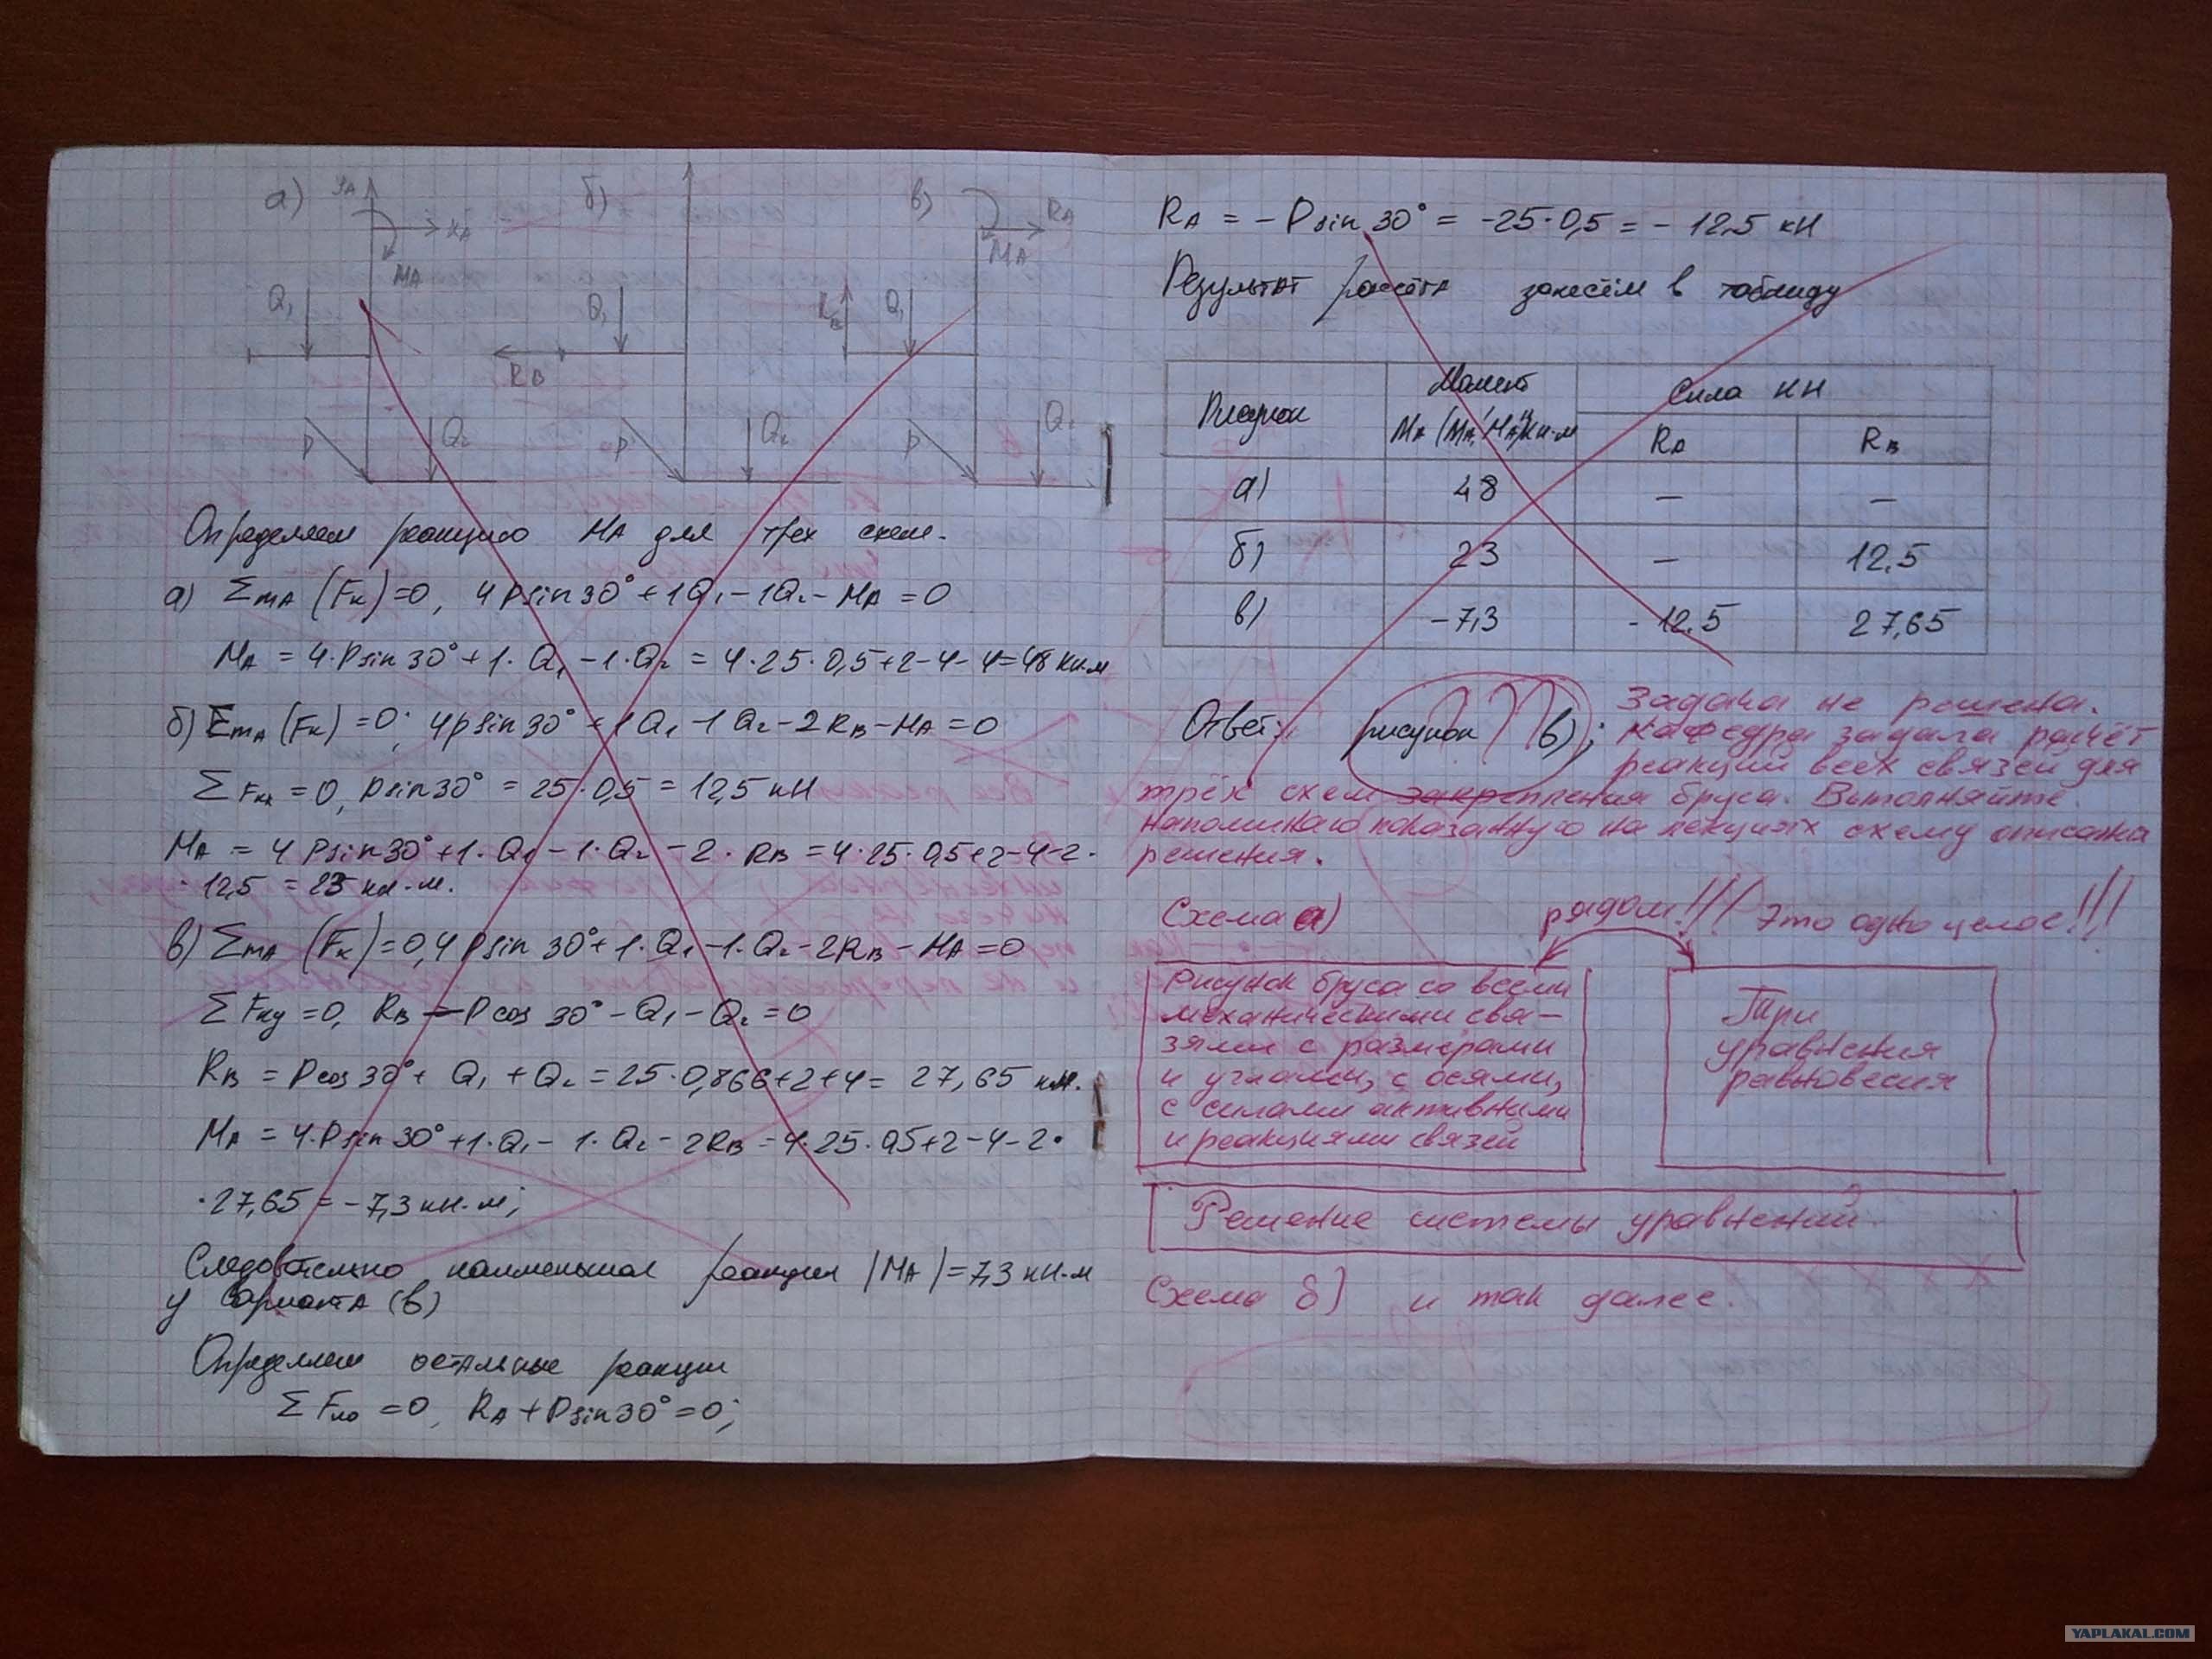 а) YA б) в) RA
XA
MA MA
Q1 Q1 RB Q1
RB
P Q2 P Q2 P Q2
Определяем реакцию МА для трех схем.
а) ΣmA (Fк)=0, 4Psin30°+1Q1-1Q2-MA=0
MA = 4·Psin30°+1·Q1-1·Q2 = 4·25·0,5+2-4=48 кн·м
б) ΣmA (Fк)=0; 4psin30°+1Q1-1Q2-2RB-MA=0
ΣFкх=0, psin30° = 25·0,5 = 12,5 кН
MA = 4Psin30°+1·Q1-1·Q2-2·RB=4·25·0,5+2-4-2·
·12,5 = 23 кн·м.
в) ΣmA (Fк)=0, 4Psin30°+1·Q1-1·Q2-2RB-MA=0
ΣFкy=0, RB-Pcos30°-Q1-Q2=0
RB = Pcos30°+Q1+Q2=25·0,866+2+4= 27,65 кн.
MA = 4·Psin30°+1·Q1-1·Q2-2RB=4·25·0,5+2-4-2·
·27,65 = -7,3 кн·м;
Следовательно наименьшая реакция |MA|=7,3 кН·м
у варианта (в)
Определяем остальные реакции
ΣFкх=0, RA+Psin30°=0;
RA = -Psin30° = -25·0,5 = -12,5 кН
Результат расчёта занесём в таблицу
Рисунок Момент Сила кН
MA (MA, MA)кн·м RA RB
а) 48 — —
б) 23 — 12,5
в) -7,3 -12,5 27,65
Ответ: рисунок в);
Задача не решена.
Кафедра задала расчёт
реакций всех связей для
трёх схем закрепления бруса. Выполняйте.
Напоминаю показанную на лекциях схему описания
решения.
Схема а) рядом!!! Это одно целое!!!
Рисунок бруса со всеми
механическими свя-
зями с размерами
и углами, с осями,
с силами активными
и реакциями связей
Три
уравнения
равновесия
Решение системы уравнений.
Схема б) и так далее.
YAPLAKAL.COM